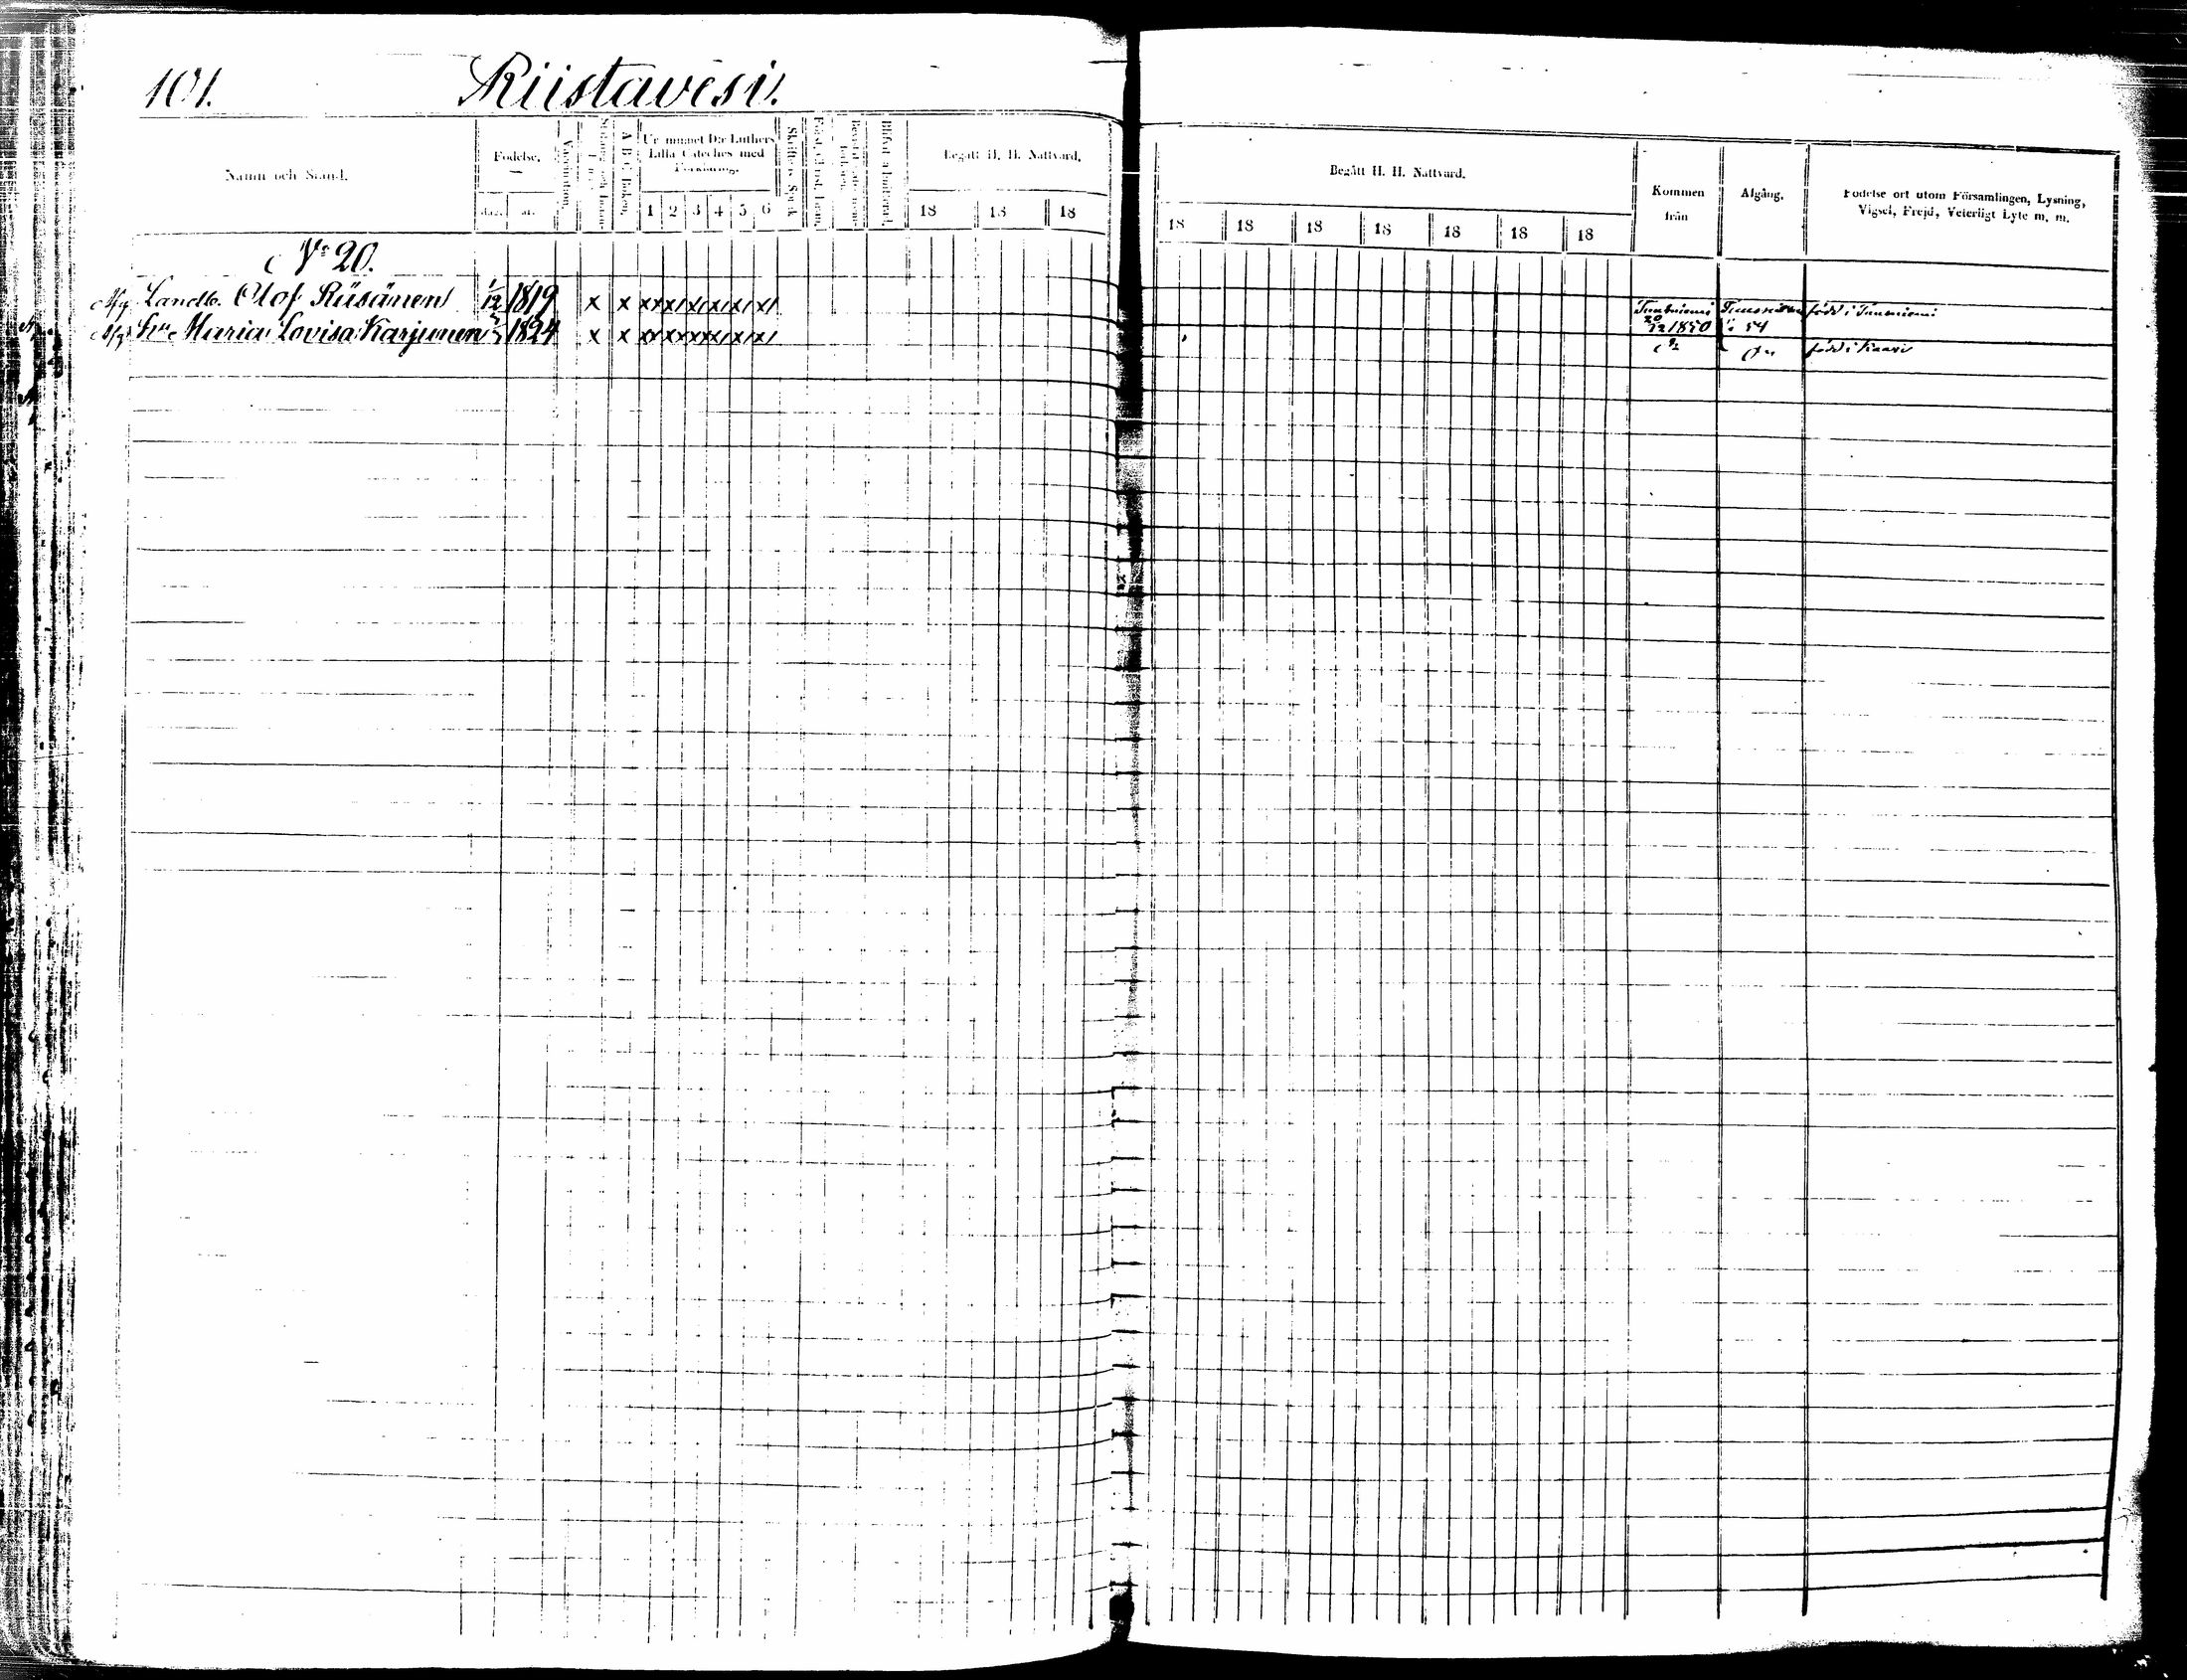 101. Riistavesi.
Namn och Stånd.
Födelse.
dag. år.
Vaccination.
A B C boken.
Ur minnet D:r Luthers Lilla Cateches med Förklaring.
1 2 3 4 5 6
Begått H. H. Nattvard.
18 18 18
Begått H. H. Nattvard.
18 18 18 18 18 18 18
Kommen från
Afgång.
Födelse ort utom Församlingen, Lysning, Vigsel, Frejd, Veterligt Lyte m. m.
No 20.
Afg. Landb. Olof Riisänen 1/12 1819 x x född i Tuusniemi
Tuusniemi
20/12 1850 54
Afg. Hu Maria Lovisa Karjunen 1824 x x född i Kaavi